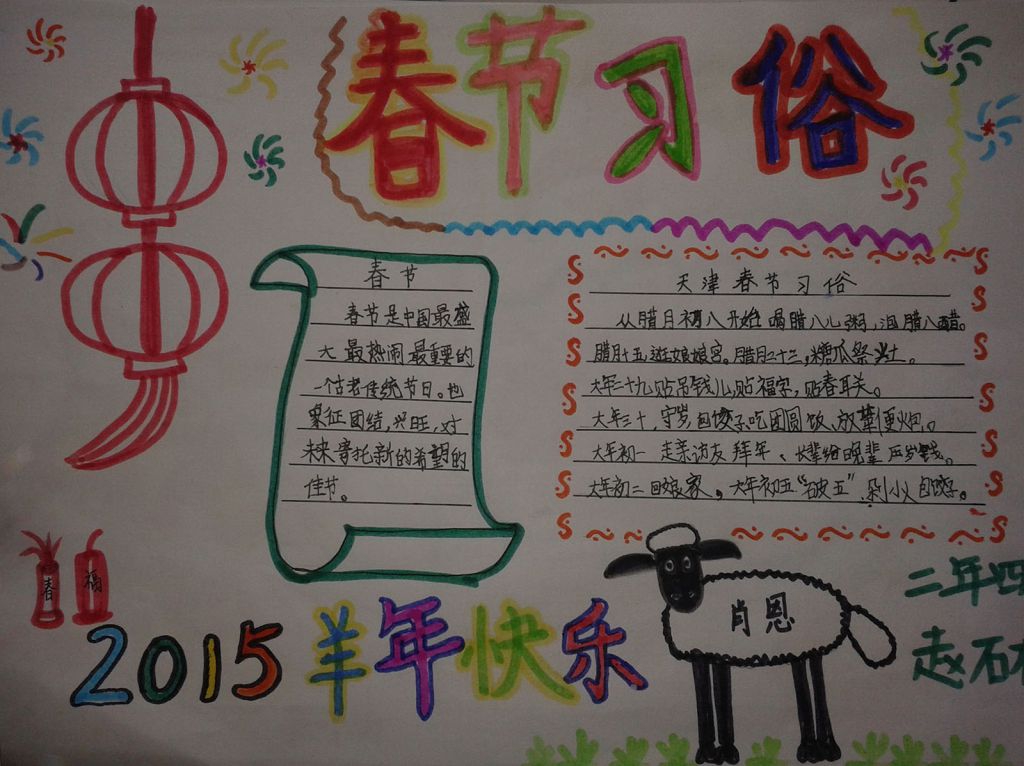 春节习俗
春节
春节是中国最盛
大最热闹最重要的
一个古老传统节日。也
象征团结,兴旺,对
未来寄托新的希望的
佳节。
天津春节习俗
从腊月初八开始喝腊八儿粥,泡腊八醋。
腊月十五逛娘娘宫。腊月二十三,糖瓜祭灶。
大年二十九贴吊钱儿贴福字,贴春联。
大年三十,守岁包饺子吃团圆饭、放鞭炮。
大年初一走亲访友拜年、长辈给晚辈压岁钱。
大年初二回娘家。大年初五“破五”,剁小人包饺子。
春
福
2015羊年快乐
肖恩
二年四
赵石